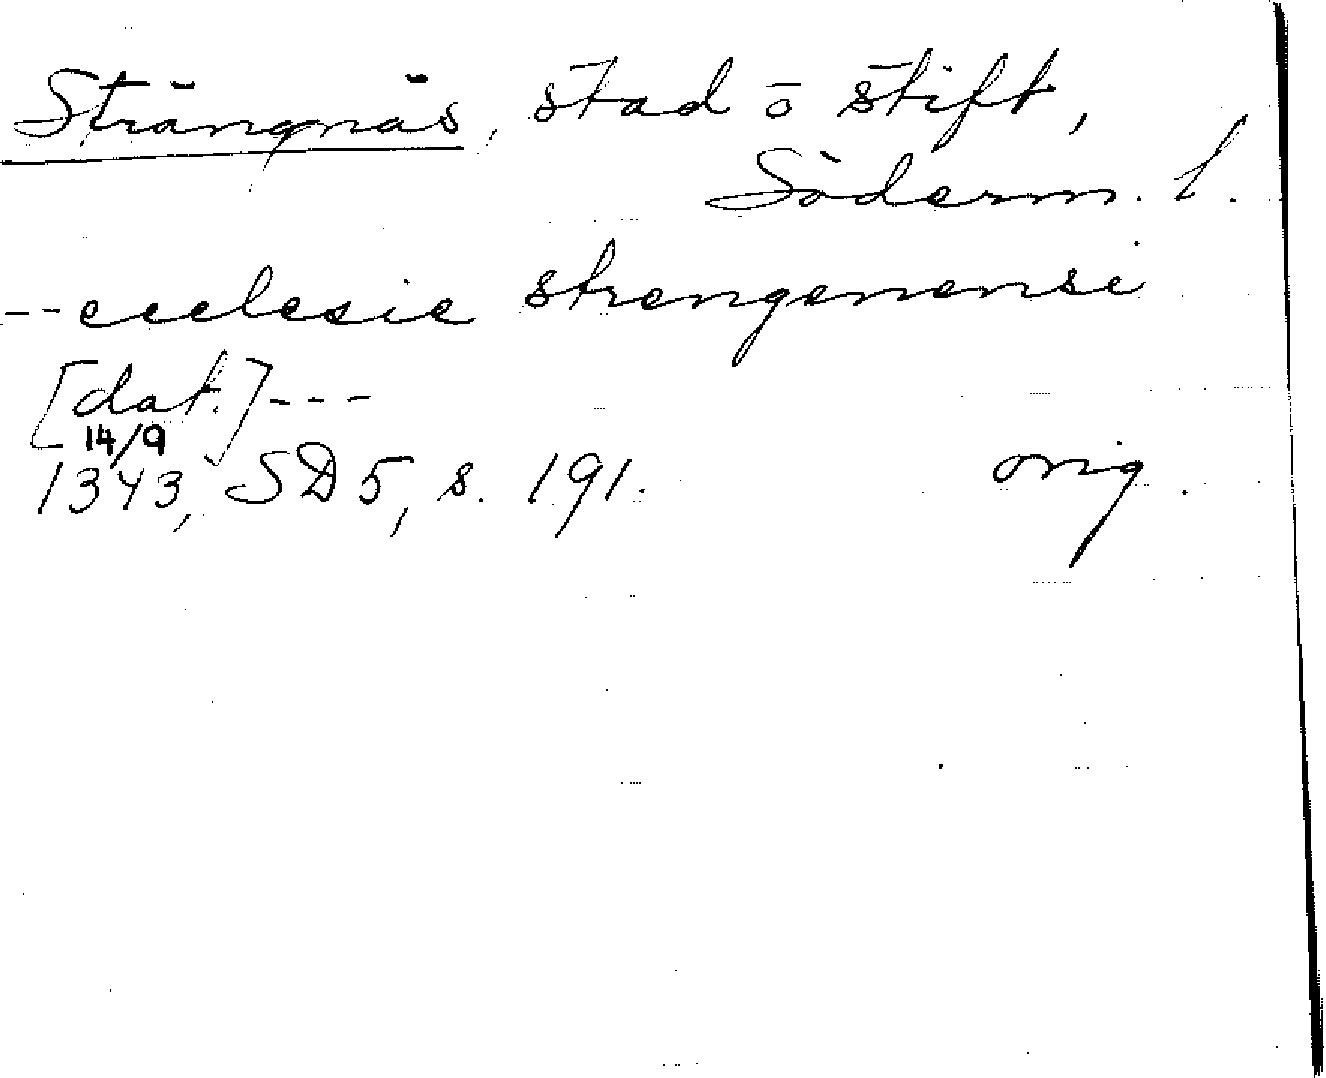 Strängnäs, stad o stift,
Söderm. l.
-- ecclesie strengenensi
[dat.] ---
14/9
1343, SD 5, s. 191. orig.